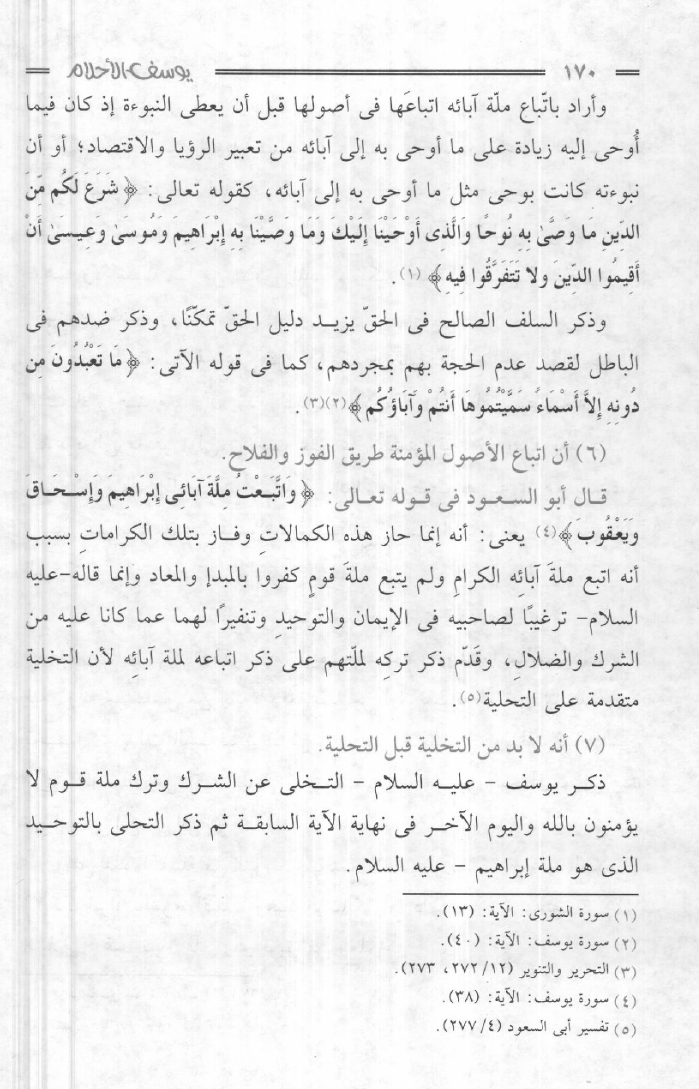 ١٧٠ يوسف الأحلام
وأراد باتّباع ملّة آبائه اتباعَها فى أصولها قبل أن يعطى النبوءة إذ كان فيما
أُوحى إليه زيادة على ما أوحى به إلى آبائه من تعبير الرؤيا والاقتصاد؛ أو أن
نبوءته كانت بوحى مثل ما أوحى به إلى آبائه، كقوله تعالى: ﴿ شَرَعَ لَكُم مِّنَ
الدِّينِ مَا وَصَّىٰ بِهِ نُوحًا وَالَّذِى أَوْحَيْنَا إِلَيْكَ وَمَا وَصَّيْنَا بِهِ إِبْرَاهِيمَ وَمُوسَىٰ وَعِيسَىٰ أَنْ
أَقِيمُوا الدِّينَ وَلا تَتَفَرَّقُوا فِيهِ﴾ (١).
وذكر السلف الصالح فى الحقّ يزيـد دليل الحقّ تمكّنًا، وذكر ضدهم فى
الباطل لقصد عدم الحجة بهم بمجردهم، كما فى قوله الآتى: ﴿ مَا تَعْبُدُونَ مِن
دُونِهِ إِلاَّ أَسْمَاءً سَمَّيْتُمُوهَا أَنتُمْ وَآبَاؤُكُم ﴾(٢)(٣).
(٦) أن اتباع الأصول المؤمنة طريق الفوز والفلاح.
قـال أبو السـعود فى قـوله تعـالى: ﴿ وَاتَّبَـعْتُ مِلَّةَ آبَائِى إِبْرَاهِيمَ وَإِسْـحَـاقَ
وَيَعْقُوبَ ﴾(٤) يعنى: أنه إنما حاز هذِه الكمالاتِ وفـاز بتلك الكراماتِ بسبب
أنه اتبع ملةَ آبائِه الكرامِ ولم يتبع ملةَ قومٍ كفروا بالمبدإ والمعاد وإنما قاله-عليه
السلام- ترغيبًا لصاحبيه فى الإيمان والتوحيدِ وتنفيرًا لهما عما كانا عليه من
الشرك والضلالِ، وقَدّم ذكر تركِه لملّتهم على ذكر اتباعه لملة آبائِه لأن التخلية
متقدمة على التحلية(٥).
(٧) أنه لا بد من التخلية قبل التحلية.
ذكـر يوسف - عليـه السلام - التـخلى عن الشـرك وترك ملة قـوم لا
يؤمنون بالله واليوم الآخـر فى نهاية الآية السابقـة ثم ذكر التحلى بالتوحـيد
الذى هو ملة إبراهيم - عليه السلام.
(١) سورة الشورى: الآية: (١٣).
(٢) سورة يوسف: الآية: (٤٠).
(٣) التحرير والتنوير (١٢/ ٢٧٢، ٢٧٣).
(٤) سورة يوسف: الآية: (٣٨).
(٥) تفسير أبى السعود (٤/ ٢٧٧).